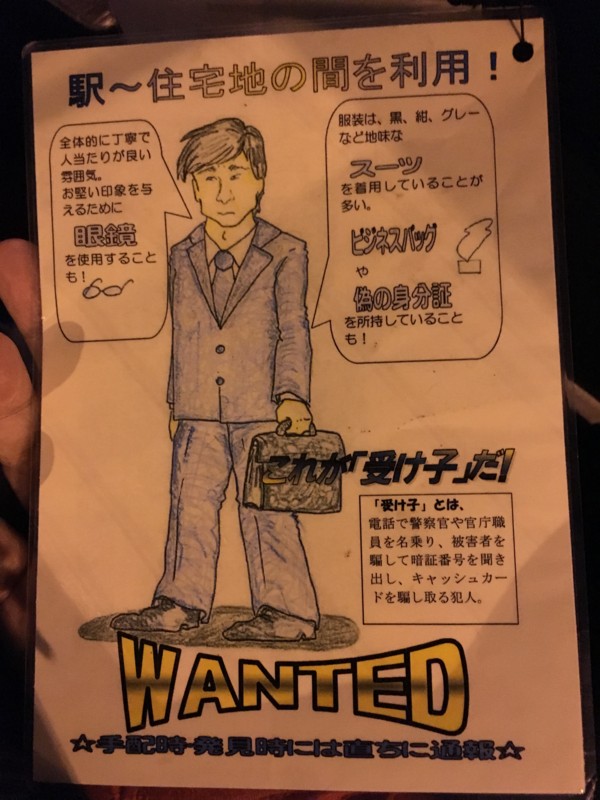 駅～住宅地の間を利用！
全体的に丁寧で
人当たりが良い
雰囲気。
お堅い印象を与
えるために
眼鏡
を使用すること
も！
服装は、黒、紺、グレー
など地味な
スーツ
を着用していることが
多い。
ビジネスバッグ
や
偽の身分証
を所持していること
も！
これが「受け子」だ！
「受け子」とは、
電話で警察官や官庁職
員を名乗り、被害者を
騙して暗証番号を聞き
出し、キャッシュカー
ドを騙し取る犯人。
WANTED
☆手配時・発見時には直ちに通報☆